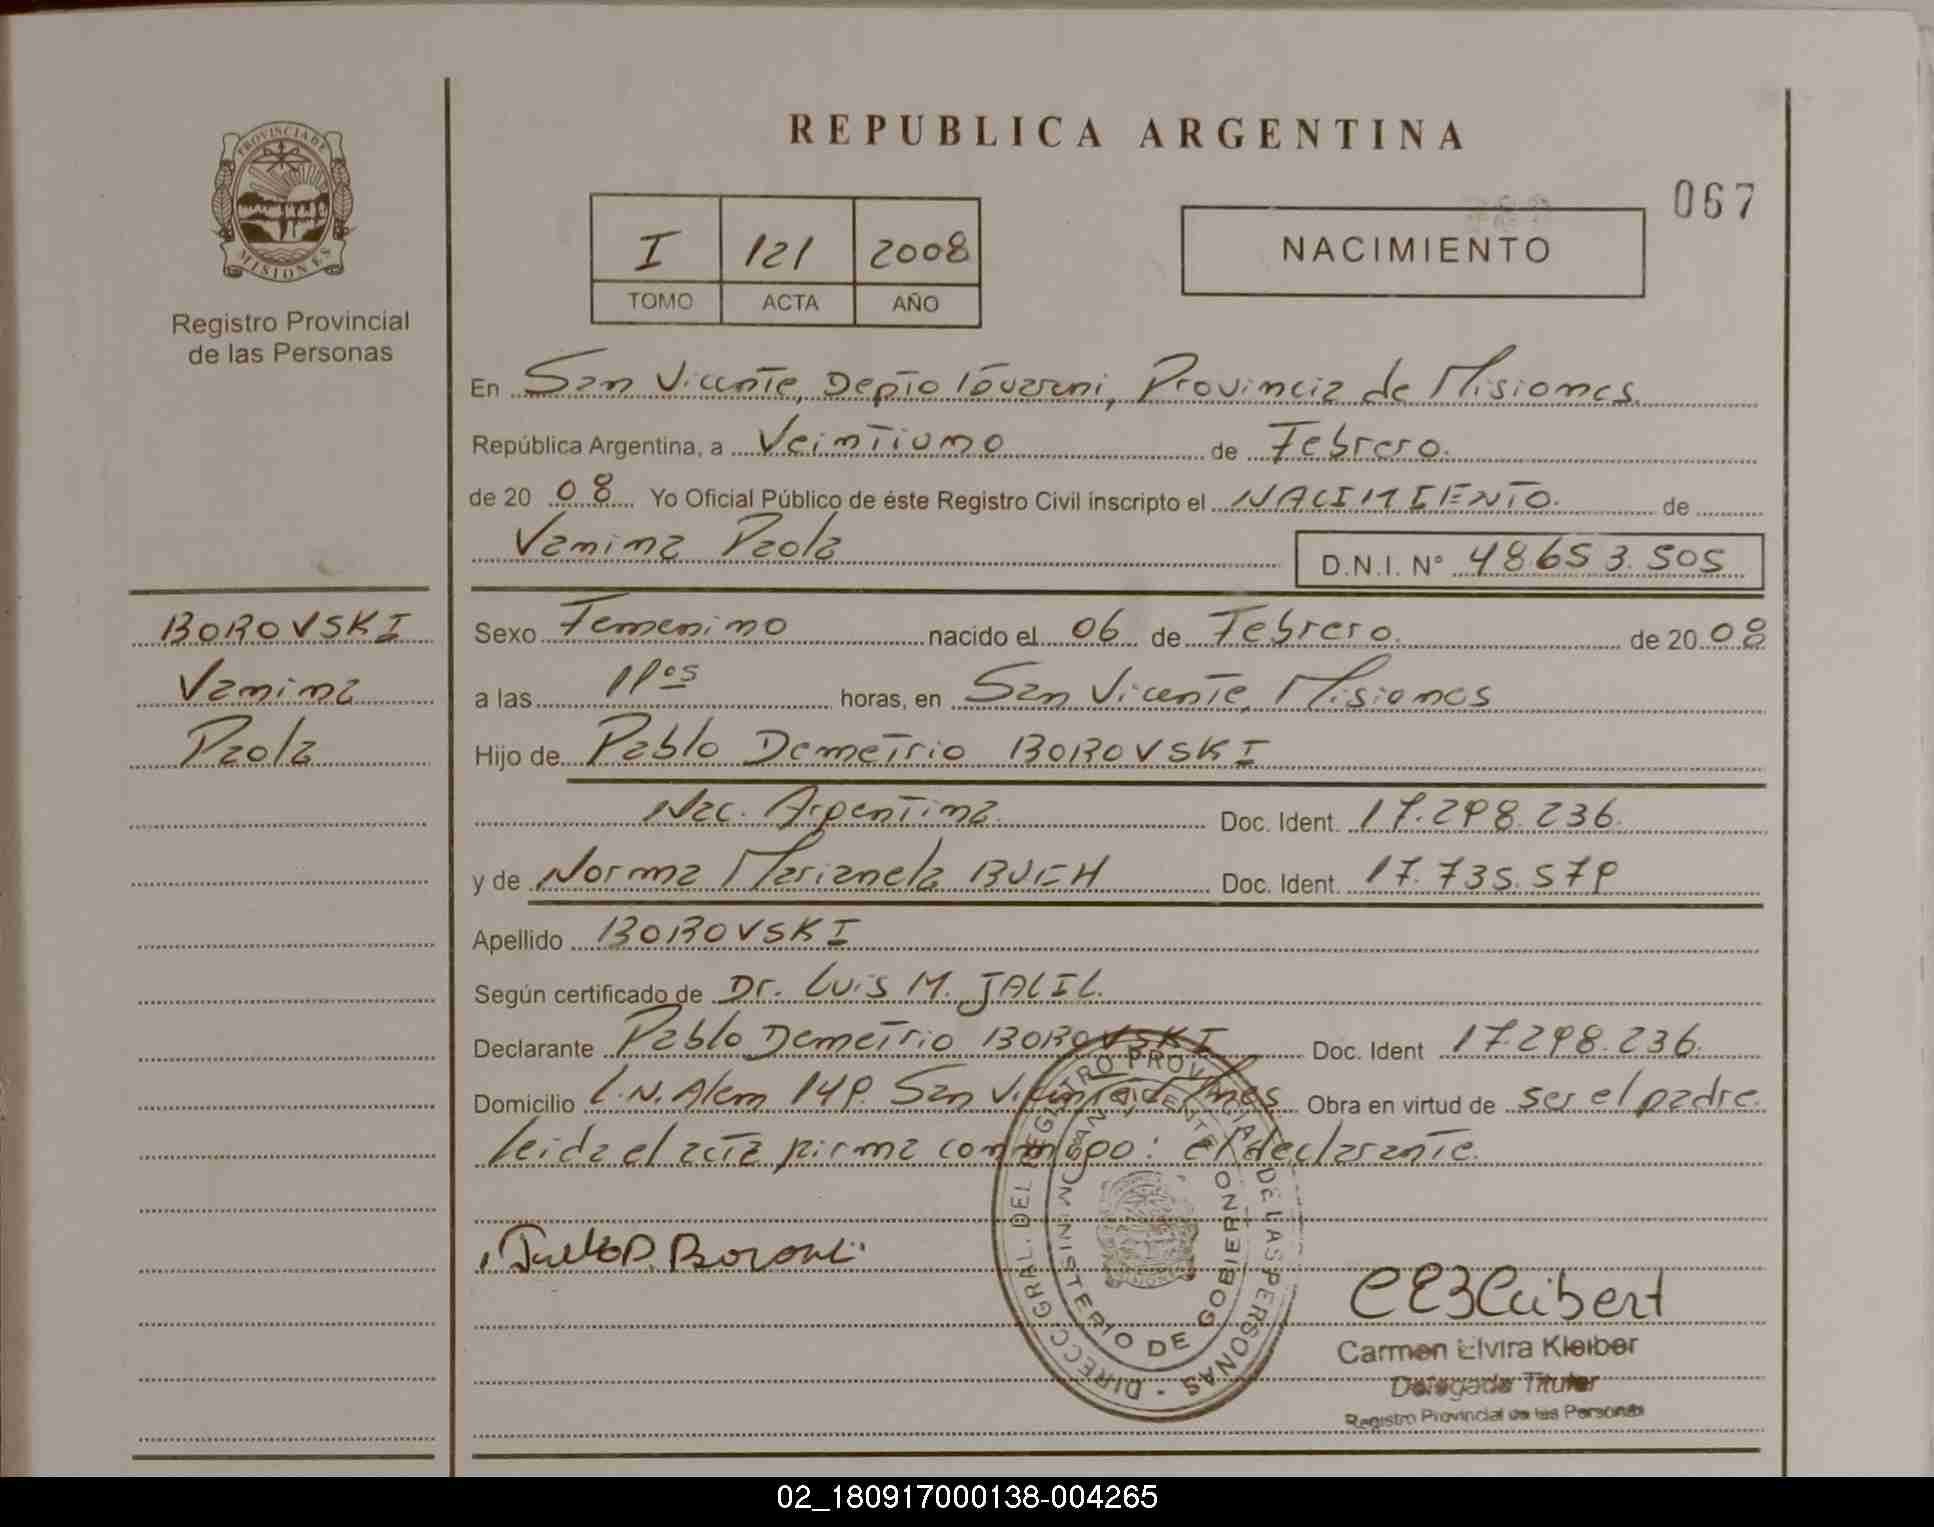 REPUBLICA ARGENTINA
067
PROVINCIA DE MISIONES
Registro Provincial
de las Personas
I 121 2008
TOMO ACTA AÑO
NACIMIENTO
En San Vicente, Depto Guarani, Provincia de Misiones.
República Argentina, a Veintiuno de Febrero.
de 20 08 Yo Oficial Público de éste Registro Civil inscripto el NACIMIENTO. de
Vanina Paola
D.N.I. N° 48.653.505
BOROVSKI
Vanina
Paola
Sexo Femenino nacido el 06 de Febrero. de 20 08
a las horas, en San Vicente, Misiones
Hijo de Pablo Demetrio BOROVSKI
Nac. Argentina. Doc. Ident. 17.298.236.
y de Norma Marianela Doc. Ident. 17.735.579
Apellido BOROVSKI
Según certificado de Dr. Luis M. JALIL.
Declarante Pablo Demetrio BOROVSKI Doc. Ident 17.298.236.
Domicilio L.N. Alem 149. San Vicente, Mnes Obra en virtud de ser el padre.
leida el acta firma conmigo: el declarante.
DIRECC. GRAL. DEL REGISTRO PROVINCIAL DE LAS PERSONAS
MINISTERIO DE GOBIERNO
SAN VICENTE
Carmen Elvira Kleiber
Delegada Titular
Registro Provincial de las Personas
02_180917000138-004265